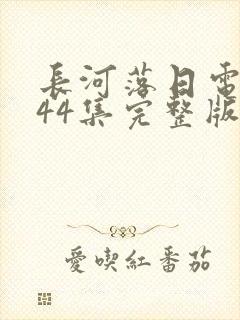 長河落日電
44集完整版
愛喫紅番茄